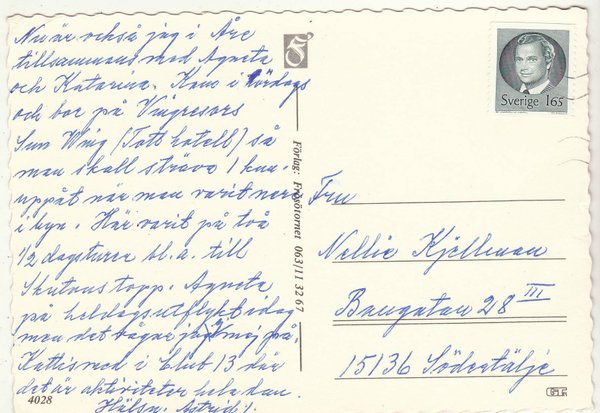 Nu är också jag i Åre
tillsammans med Agneta
och Katarina. Kom i lördags
och bor på Vingresors
Sun Wing (Totthotell) så
man skall sträva 1 km
uppåt när man varit nere
i byn. Här varit på två
1/2 dagsturer bl.a. till
Skutans topp. Agneta
på heldagsutflykt idag
men det vågar jag ej mej på.
Kattis med i Club 13 där
det är aktiviteter hela dan.
Hälsn. Astrid
4028
Förlag: Frösötornet 063/11 32 67
Sverige 165
Fru
Nellie Kjellman
Bangatan 28 III
15136 Södertälje